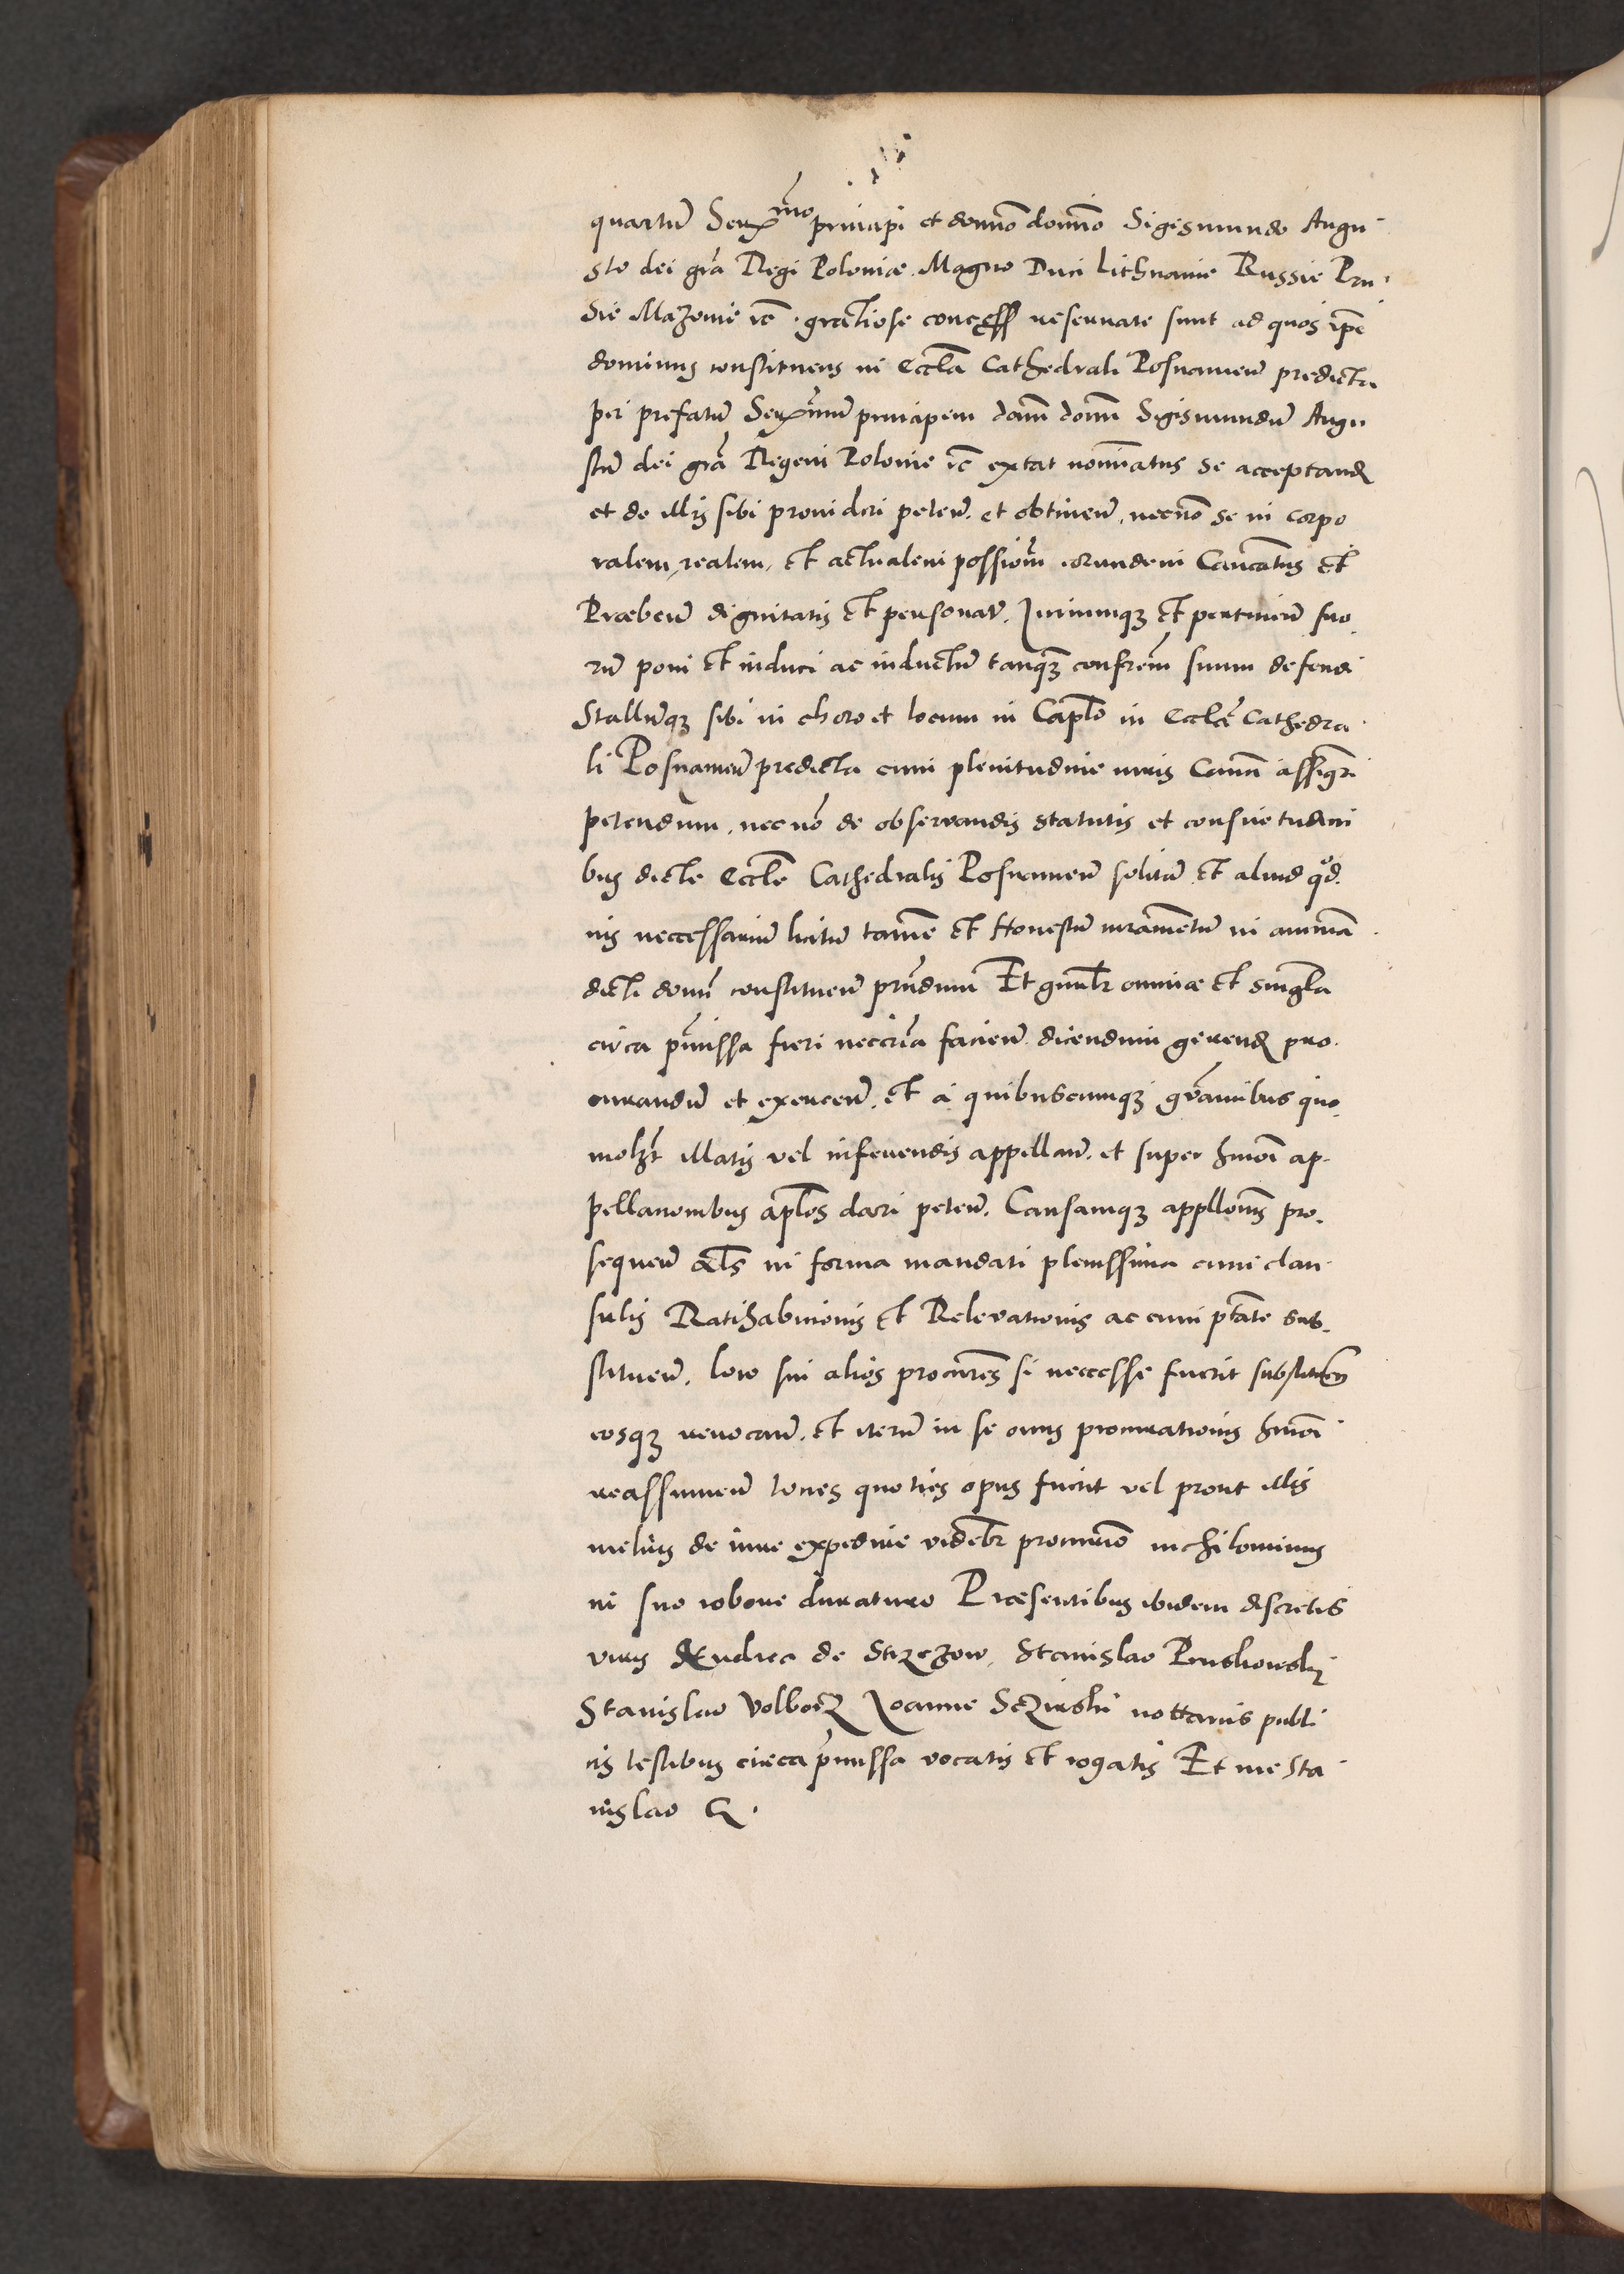 quartū Serx̄mo principi et domīo domīo Sigismundo Augu
sto dei grā Regi Poloniæ Magno Duci Lithuanie Russie Pru
sie Mazouie ꝛc gratiose concess reseruate sunt ad quos ip̄e
dominus constituens in Eccl̄a Cathedrali Posnanieñ predicta
per prefatū Serx̄mū principem dom̄ dom̄ Sigismundū Augu
stū dei grā Regem Polonie ꝛc extat nomīatus se acceptand
et de illis sibi prouideri peteñ. et obtineñ. necnō se in corpo
ralem, realem, et actualem possiōm eorundem Canōcatus et
Præbeñ dignitatis et personat̄. Iuriumqꝫ et pertineñ suo
rū poni et induci ac inductū tanqꝫ confrēm suum defendi
Stallūqꝫ sibi in choro et locum in Capl̄o in Eccl̄ē Cathedra
li Posnanieñ predicta cum plenitudine iuris Canōi assigr̄i
petendum. necnō de obseruandis statutis et consuetudini
bus dicte Eccl̄e Cathedralis Posnanieñ solitū et aliud qod
nis neccessariū licitū tamē et Honestū iuramētū in animā
dicti domī constitueñ prn̄dum Et gnalr̄ omniæ et singl̄a
circa pr̄missa fieri neccr̄ia facieñ dicendum gerend pro
curandū et exerceñ. et a quibuscumqꝫ gr̄auaībus quo
molꝫt illatis vel inferendis appellañ. et super hmōi ap
pellationibus apl̄os dari peteñ. Causamqꝫ appll̄onis pro
sequeñ al̄s in forma mandati plenissima cum clau
sulis Ratihabitionis et Releuationis ac cum ptāte sub
stitueñ. loco sui alios procūrēs si neccesse fuerit substitueñ
eosqꝫ reuocañ. et iterū in se onus procurationis hmōi
reassumeñ toties quoties opus fuerit vel prout illis
melius de iure expedire videbr̄ procuratiō nichilominus
in suo robore duraturo Præsentibus ibidem discretis
viris Andrea de Strzezow, Stanislao Pruskowsky
Stanislao Volborz Ioanne Sczinski nottariis publi
cis testibus circa pr̄missa vocatis et rogatis Et me Sta
nislao